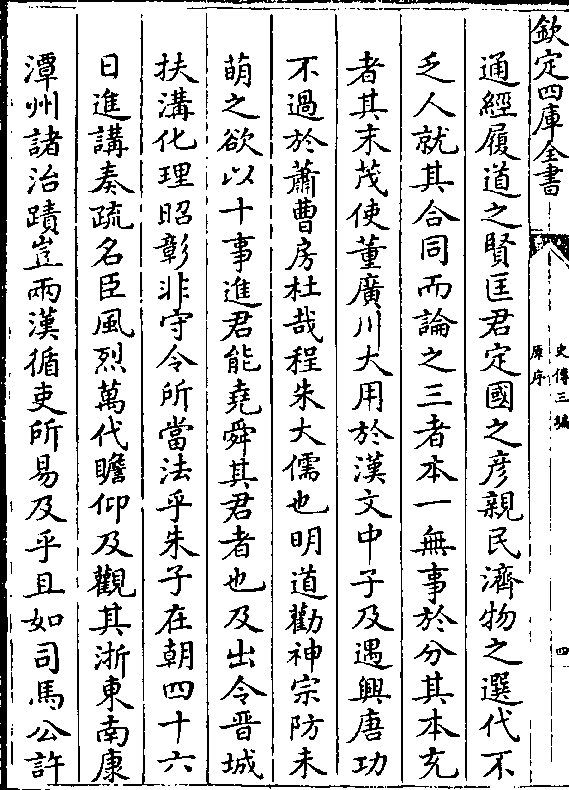 欽定四庫全書
史傳三編
原序
四
通經履道之賢匡君定國之彦親民濟物之選代不
乏人就其合同而論之三者本一無事於分其本充
者其末茂使董廣川大用於漢文中子及遇興唐功
不過於蕭曹房杜哉程朱大儒也明道勸神宗防未
萌之欲以十事進君能堯舜其君者也及出令晋城
扶溝化理昭彰非守令所當法乎朱子在朝四十六
日進講奏疏名臣風烈萬代瞻仰及觀其浙東南康
潭州諸治蹟豈兩漢循吏所易及乎且如司馬公許